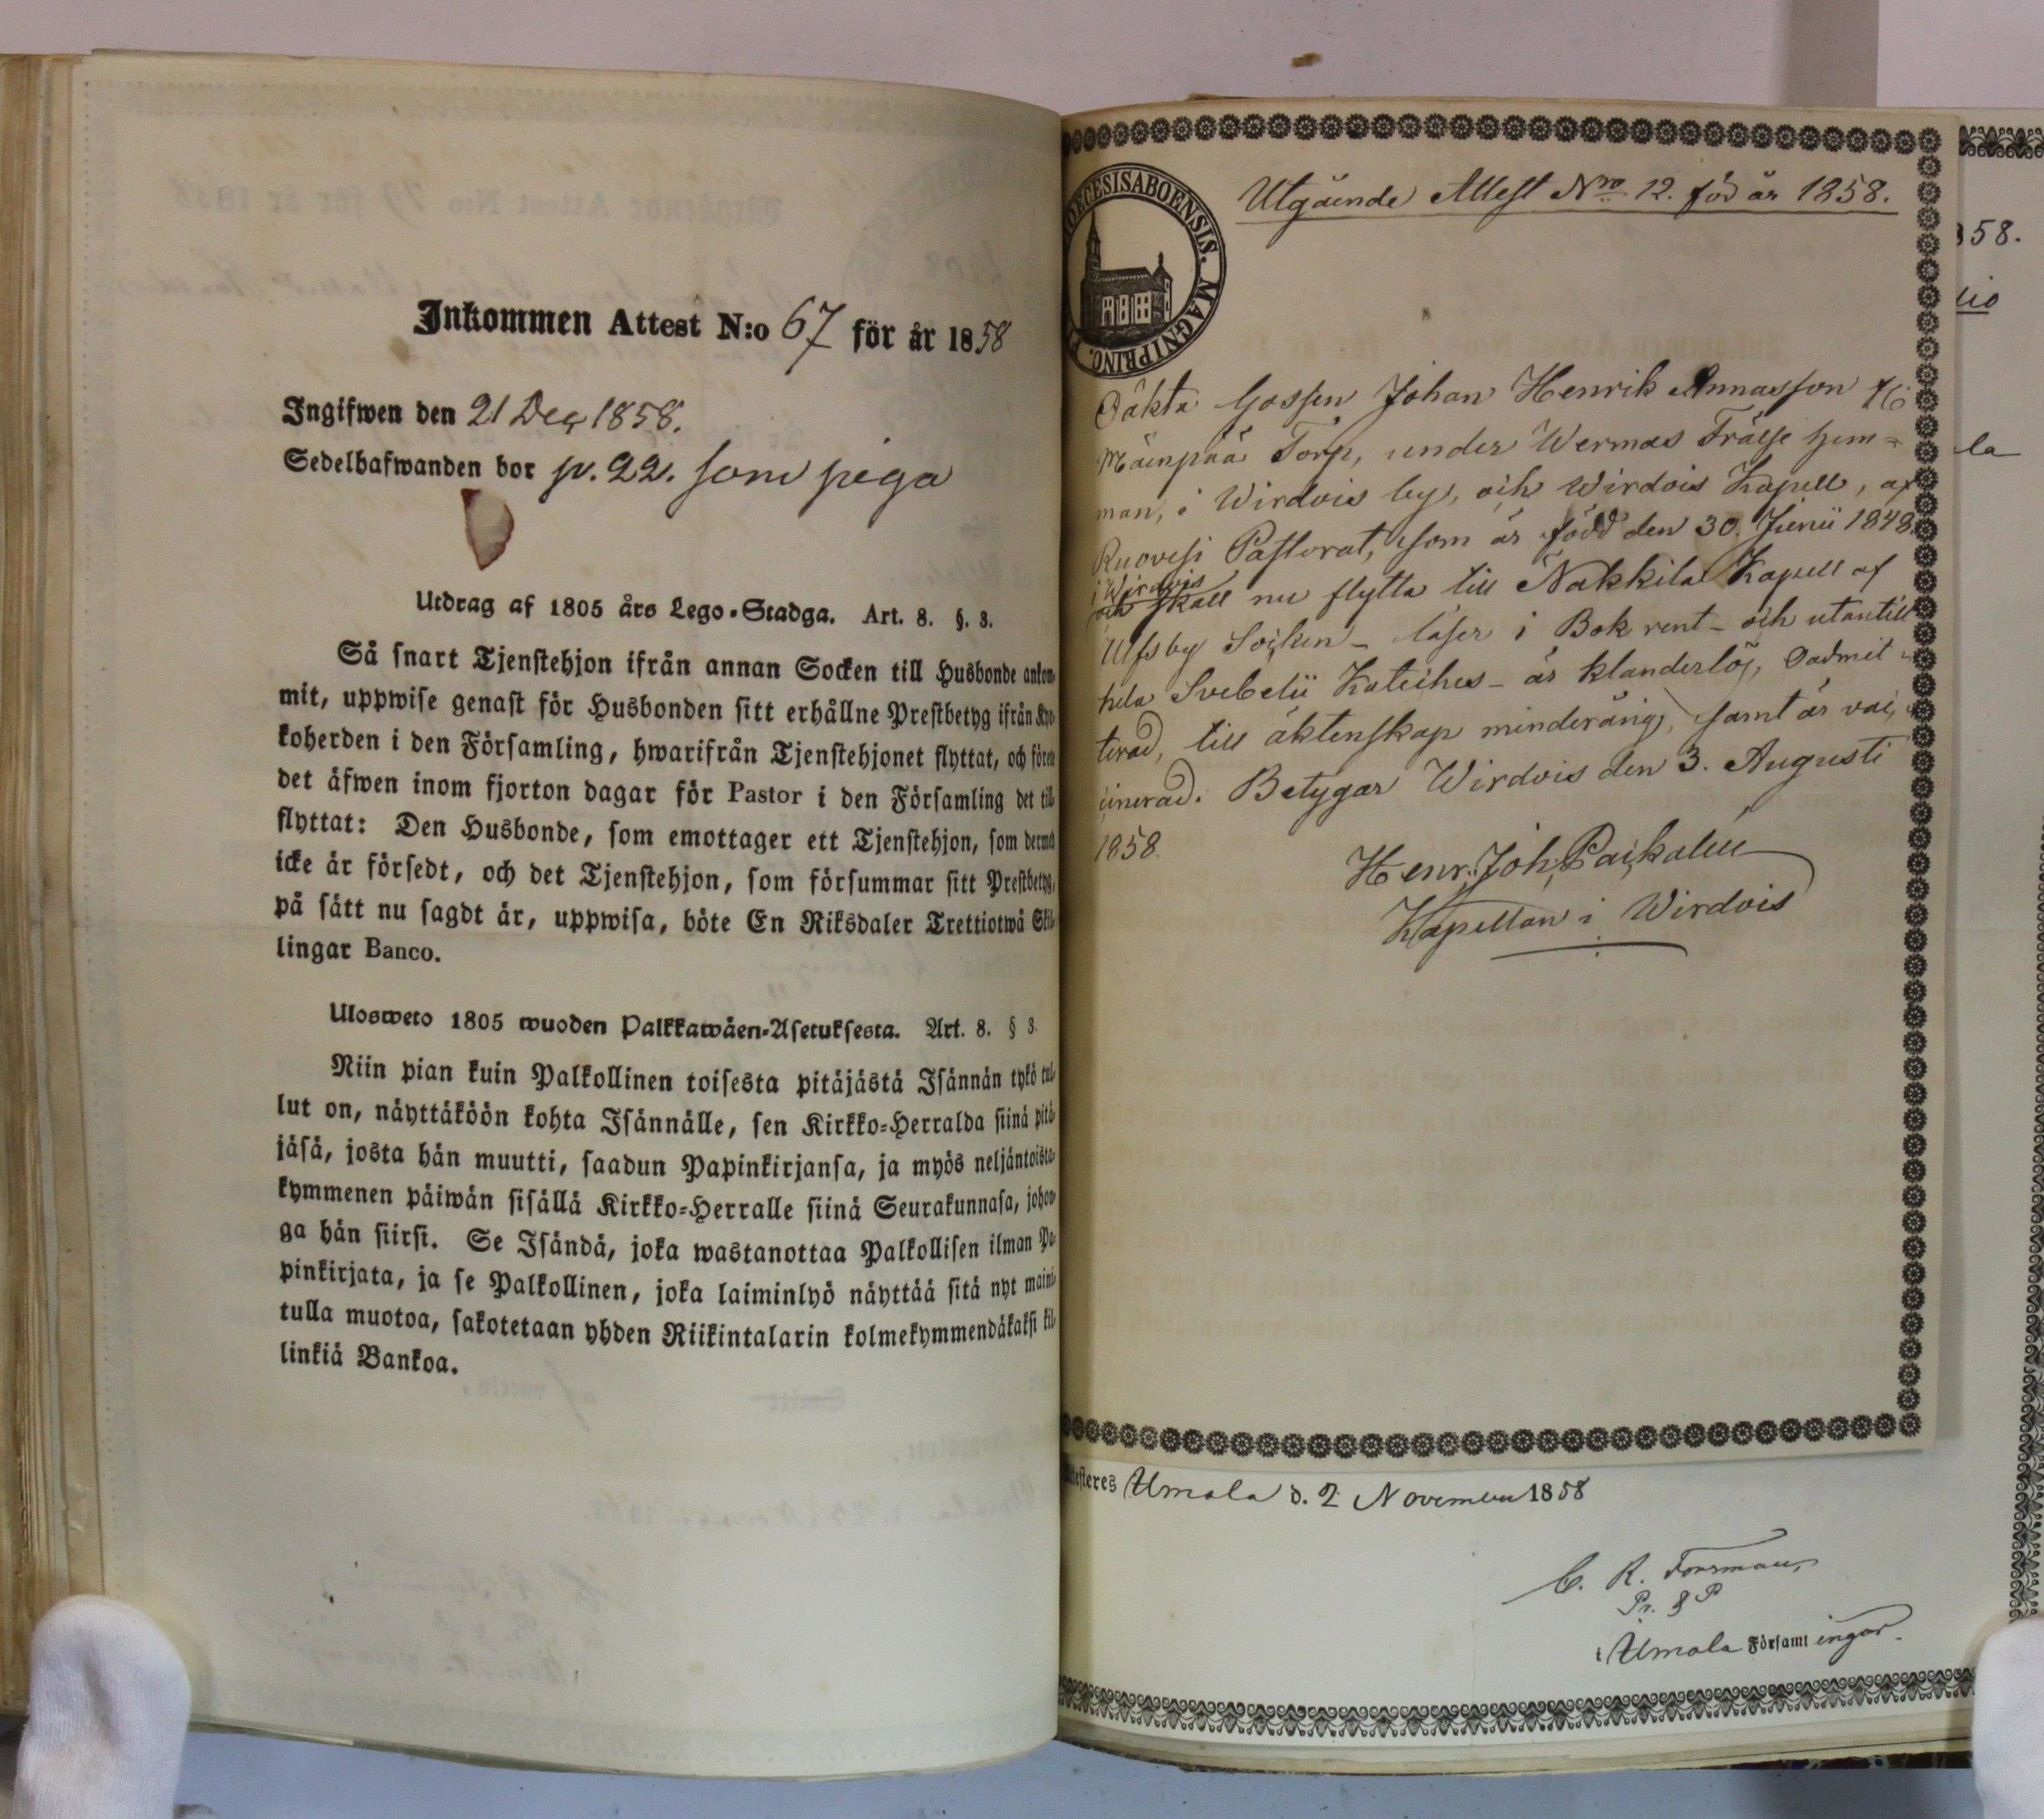 Inkommen Attest N:o 67 för år 1858
Ingifwen den 21 Dec 1858.
Sedelhafwanden bor p. 22. som piga
Utdrag af 1805 års Lego-Stadga. Art. 8. §. 3.
Så snart Tjenstehjon ifrån annan Socken till Husbonde ankom-
mit, uppwise genast för Husbonden sitt erhållne Prestbetyg ifrån Kyr-
koherden i den Församling, hwarifrån Tjenstehjonet flyttat, och förete
det äfwen inom fjorton dagar för Pastor i den Församling det till-
flyttat: Den Husbonde, som emottager ett Tjenstehjon, som dermed
icke är försedt, och det Tjenstehjon, som försummar sitt Prestbetyg,
på sätt nu sagdt är, uppwisa, böte En Riksdaler Trettiotwå Skil-
lingar Banco.
Ulosweto 1805 wuoden Palkkawäen-Asetuksesta. Art. 8. § 3.
Niin pian kuin Palkollinen toisesta pitäjästä Isännän tykö tul-
lut on, näyttäköön kohta Isännälle, sen Kirkko-Herralda siinä pitä-
jäsä, josta hän muutti, saadun Papinkirjansa, ja myös neljäntoista-
kymmenen päiwän sisällä Kirkko-Herralle siinä Seurakunnasa, johon-
ga hän siirsi. Se Isändä, joka wastanottaa Palkollisen ilman Pa-
pinkirjata, ja se Palkollinen, joka laiminlyö näyttää sitä nyt maini-
tulla muotoa, sakotetaan yhden Riikintalarin kolmekymmendäkaksi kil-
linkiä Bankoa.
DIOECESIS ABOENSIS. MAGNI PRINC. F
Utgående Attest Nro 12. för år 1858.
Oäkta Gossen Johan Henrik Annasson
Mäenpää Torp, under Wermas Frälse hem-
man, i Wirdois by, och Wirdois Kapell, af
Ruovesi Pastorat, som är född den 30. Junii 1848.
i Wirdois
och skall nu flytta till Nakkila Kapell af
Ulfsby Socken - läser i Bok rent - och utantill
hela Svebelii Kateches - är klanderlös, Oadmit-
terad, till äktenskap minderårig, samt är vac-
cinerad. Betygar Wirdois den 3. Augusti
1858.
Henr. Joh.
Kapellan i Wirdois
58.
la
Umala d. 2 November 1858
C. R. Forsman,
i Umala Församlingar.